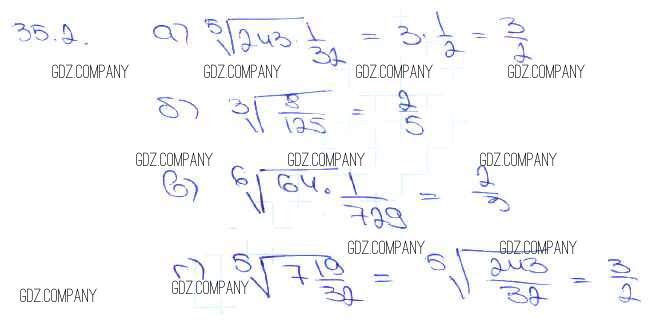 35.2. а) ⁵√(243 · 1/32) = 3 · 1/2 = 3/2
GDZ.COMPANY GDZ.COMPANY GDZ.COMPANY GDZ.COMPANY
б) ³√(8/125) = 2/5
GDZ.COMPANY GDZ.COMPANY GDZ.COMPANY
в) ⁶√(64 · 1/729) = 2/3
GDZ.COMPANY GDZ.COMPANY
г) ⁵√(7 19/32) = ⁵√(243/32) = 3/2
GDZ.COMPANY GDZ.COMPANY